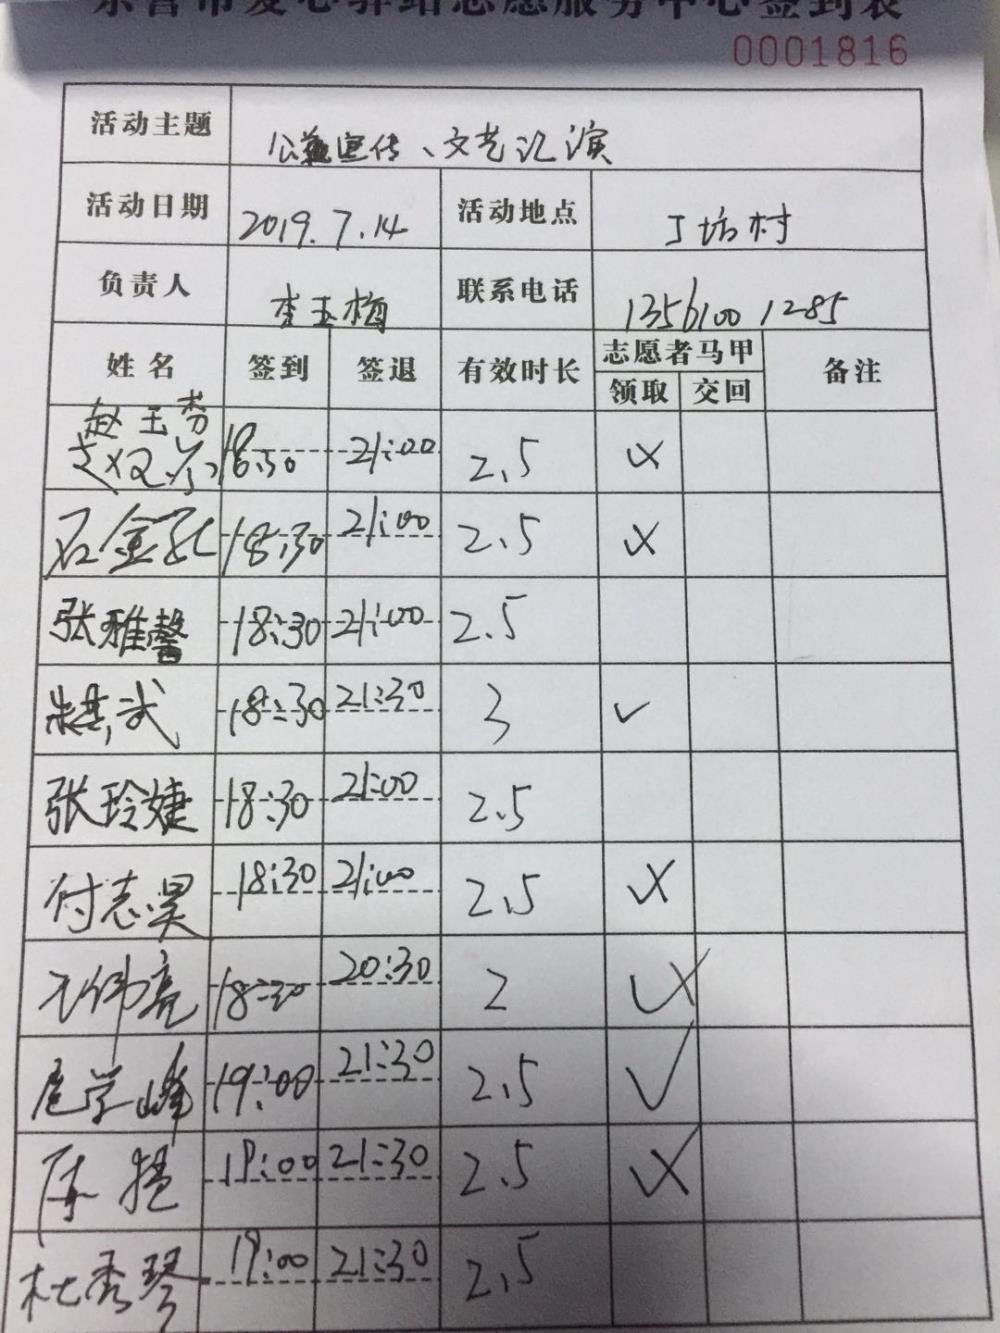 东营市爱心驿站志愿服务中心签到表
0001816
活动主题 公益宣传、文艺汇演
活动日期 2019.7.14 活动地点 丁坊村
负责人 李玉梅 联系电话 13561001285
姓名 签到 签退 有效时长 志愿者马甲 备注
领取 交回
赵玉芬
18:30 21:00 2.5
18:30 21:00 2.5
张雅馨 18:30 21:00 2.5
18:30 21:30 3 ✓
张玲婕 18:30 21:00 2.5
付志昊 18:30 21:00 2.5
王伟亮 18:30 20:30 2
扈学峰 19:00 21:30 2.5 ✓
19:00 21:30 2.5
杜秀琴 19:00 21:30 2.5